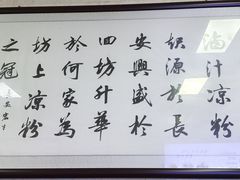 滷汁凉粉
起源於長
安興盛於
坊升華
於何家為
坊上凉粉
之冠